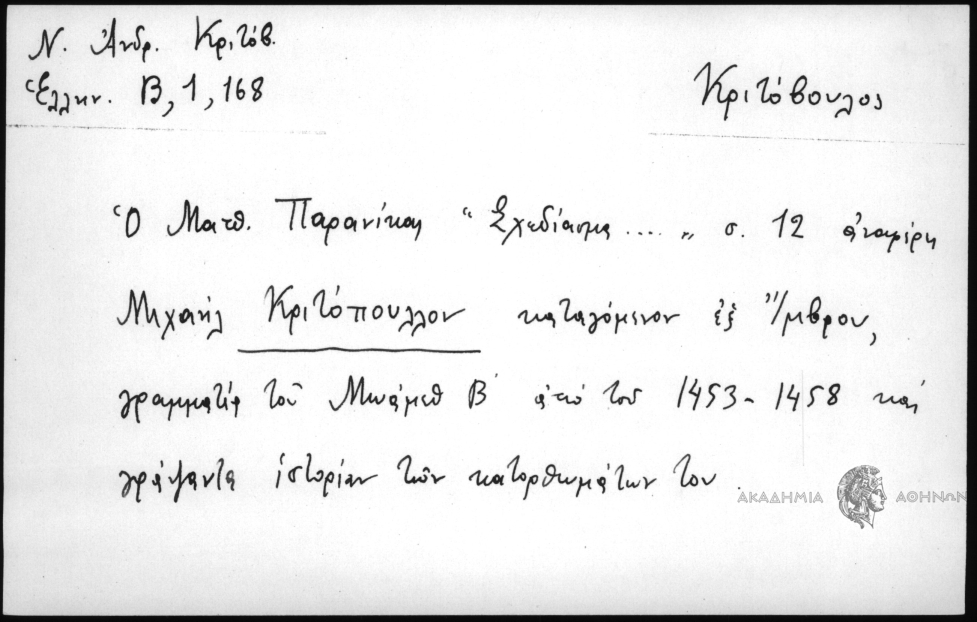 Ν. Ἀνδρ. Κριτόβ.
Ἑλλην. Β, 1, 168
Κριτόβουλος
Ὁ Ματθ. Παρανίκας "Σχεδίασμα .... „ σ. 12 ἀναφέρει
Μιχαήλ Κριτόπουλλον καταγόμενον ἐξ Ἴμβρου,
γραμματέα τοῦ Μωάμεθ Β΄ ἀπό του 1453 - 1458 καί
γράψαντα ἱστορίαν τῶν κατορθωμάτων του.
ΑΚΑΔΗΜΙΑ ΑΘΗΝΩΝ